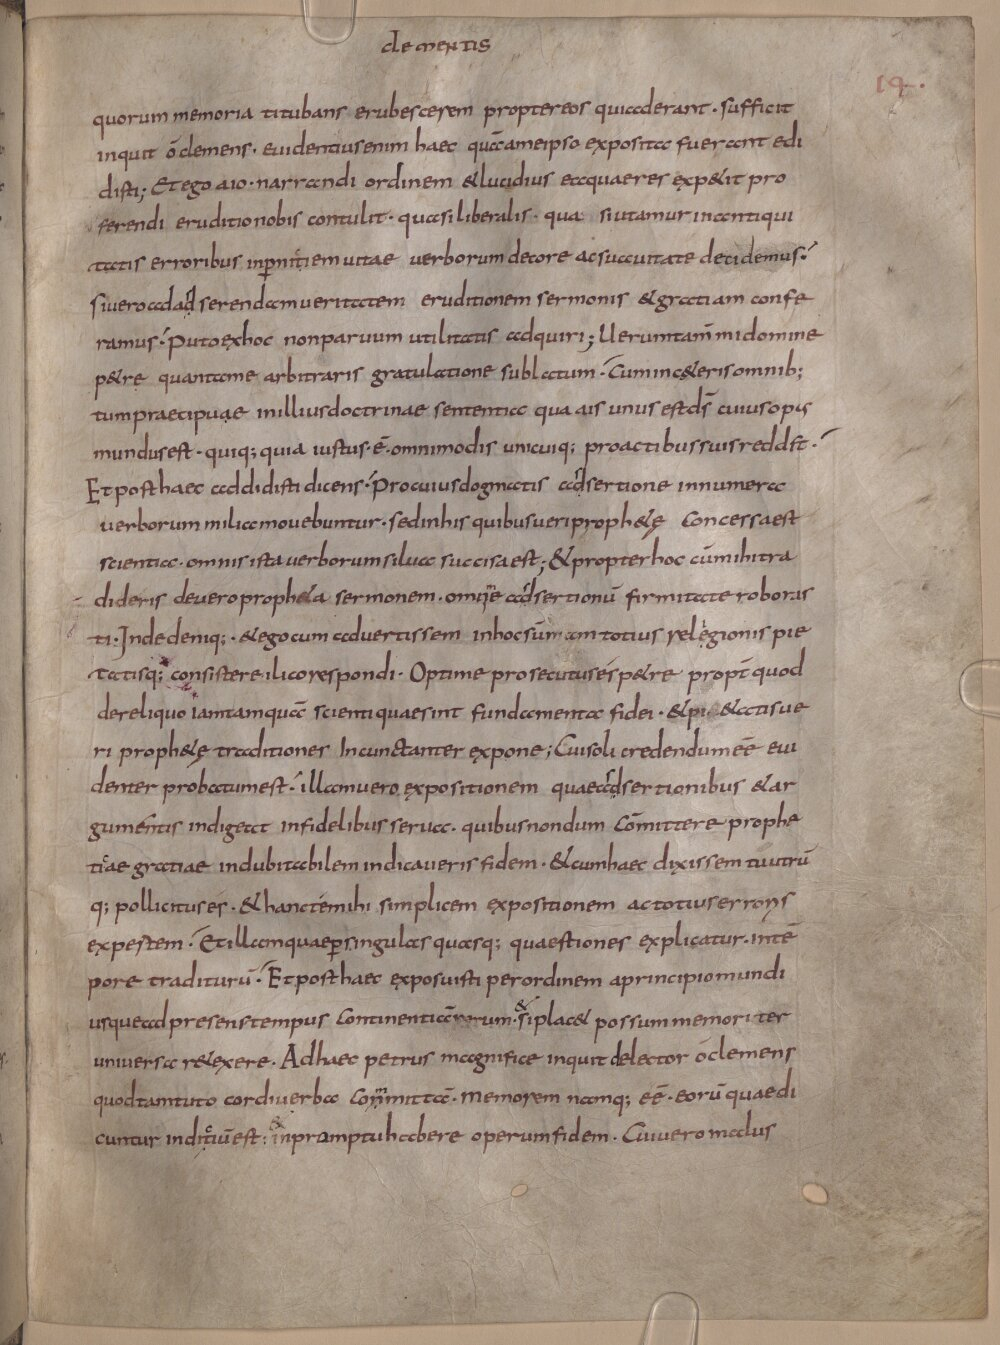 clementis
14.
quorum memoria titubans erubescerem proptereos quiaaderant · sufficit
inquit ō clemens · euidentiusenim haec quāameipso exposita fuerant edi
disti; Et ego aio · narrandi ordinem & lucidius eaquaeres exp&it pro
ferendi eruditionobis contulit · quasiliberalis · qua siutamur inantiqui
tatis erroribus inpernitiem uitae uerborum decore acsuauitate decidemus·
siueroadadserendamueritatem eruditionem sermonis & gratiam confe
ramus · Puto exhoc nonparuum utilitatis adquiri; Uerumtam̄ midomine
p&re quantame arbitraris gratulatione sublatum · Cuminc&eris omnib;
tumpraecipuae inillius doctrinae sententia qua ais unus est ds̄ cuius opis
mundusest · quiq; quia iustus · ē · omnimodis unicuiq; proactibus suis reddit ·
Et posthaec addidisti dicens · Procuiusdogmatis adsertione innumera
uerborum milia mouebuntur · sedinhis quibusueriproph&ę Concessa est
scientia · omnis ista uerborum silua succisa est; & propterhoc cūmihitra
dideris deueroproph&a sermonem · omnē adsertionū firmitate roboras
ti · Indedeniq; · & ego cum aduertissem inhoc sūmam totius religionis pie
tatisq; consistere ilico respondi · Optime prosecutus és p&re propt̄ quod
dereliquo iamtamquā scienti quaesint fundamenta fidei · & pi &atis ue
ri proph&ę traditiones Incunctanter expone; Cuisoli credendum eē eui
denter probatum est · illamuero expositionem quae adsertionibus & ar
gumentis indigeat infidelibus serua · quibusnondum Cōmittere prophe
ticae gratiae indubitabilem indicaueris fidem · & cumhaec dixissem tu utrū
q; pollicitus és · & hanctemihi simplicem expositionem ac totius erroris
expestem · Et illamquaepersingulas quasq; quaestiones explicatur · intē
pore traditurū · Et posthaec exposuisti perordinem aprincipiomundi
usqueadpresenstempus Continentiā rerum · & siplac& possum memoriter
uniuersa r&exere · Adhaec petrus magnifice inquit delector ō clemens
quodtamtuto cordiuerba Com̄mittā · memorem namq; eē · eorū quae di
cuntur inditiū est : & inpromptuhabere operumfidem · Cuiueromalus